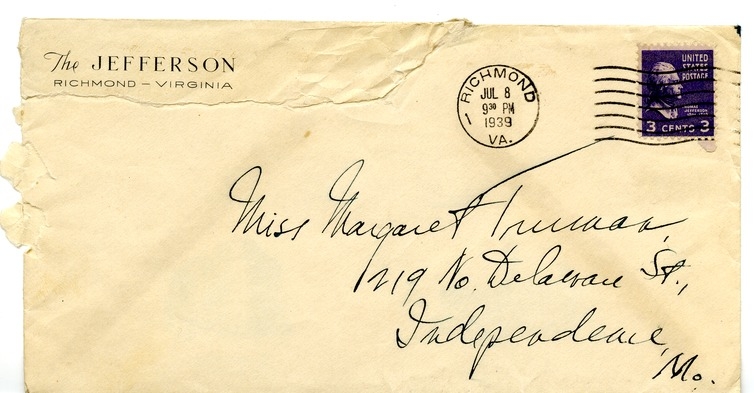 The JEFFERSON
RICHMOND – VIRGINIA
RICHMOND
JUL 8
9 30 PM
1939
VA.
1
UNITED
STATES
POSTAGE
THOMAS
JEFFERSON
3 CENTS 3
Miss Margaret Truman,
219 No. Delaware St.,
Independence,
Mo.